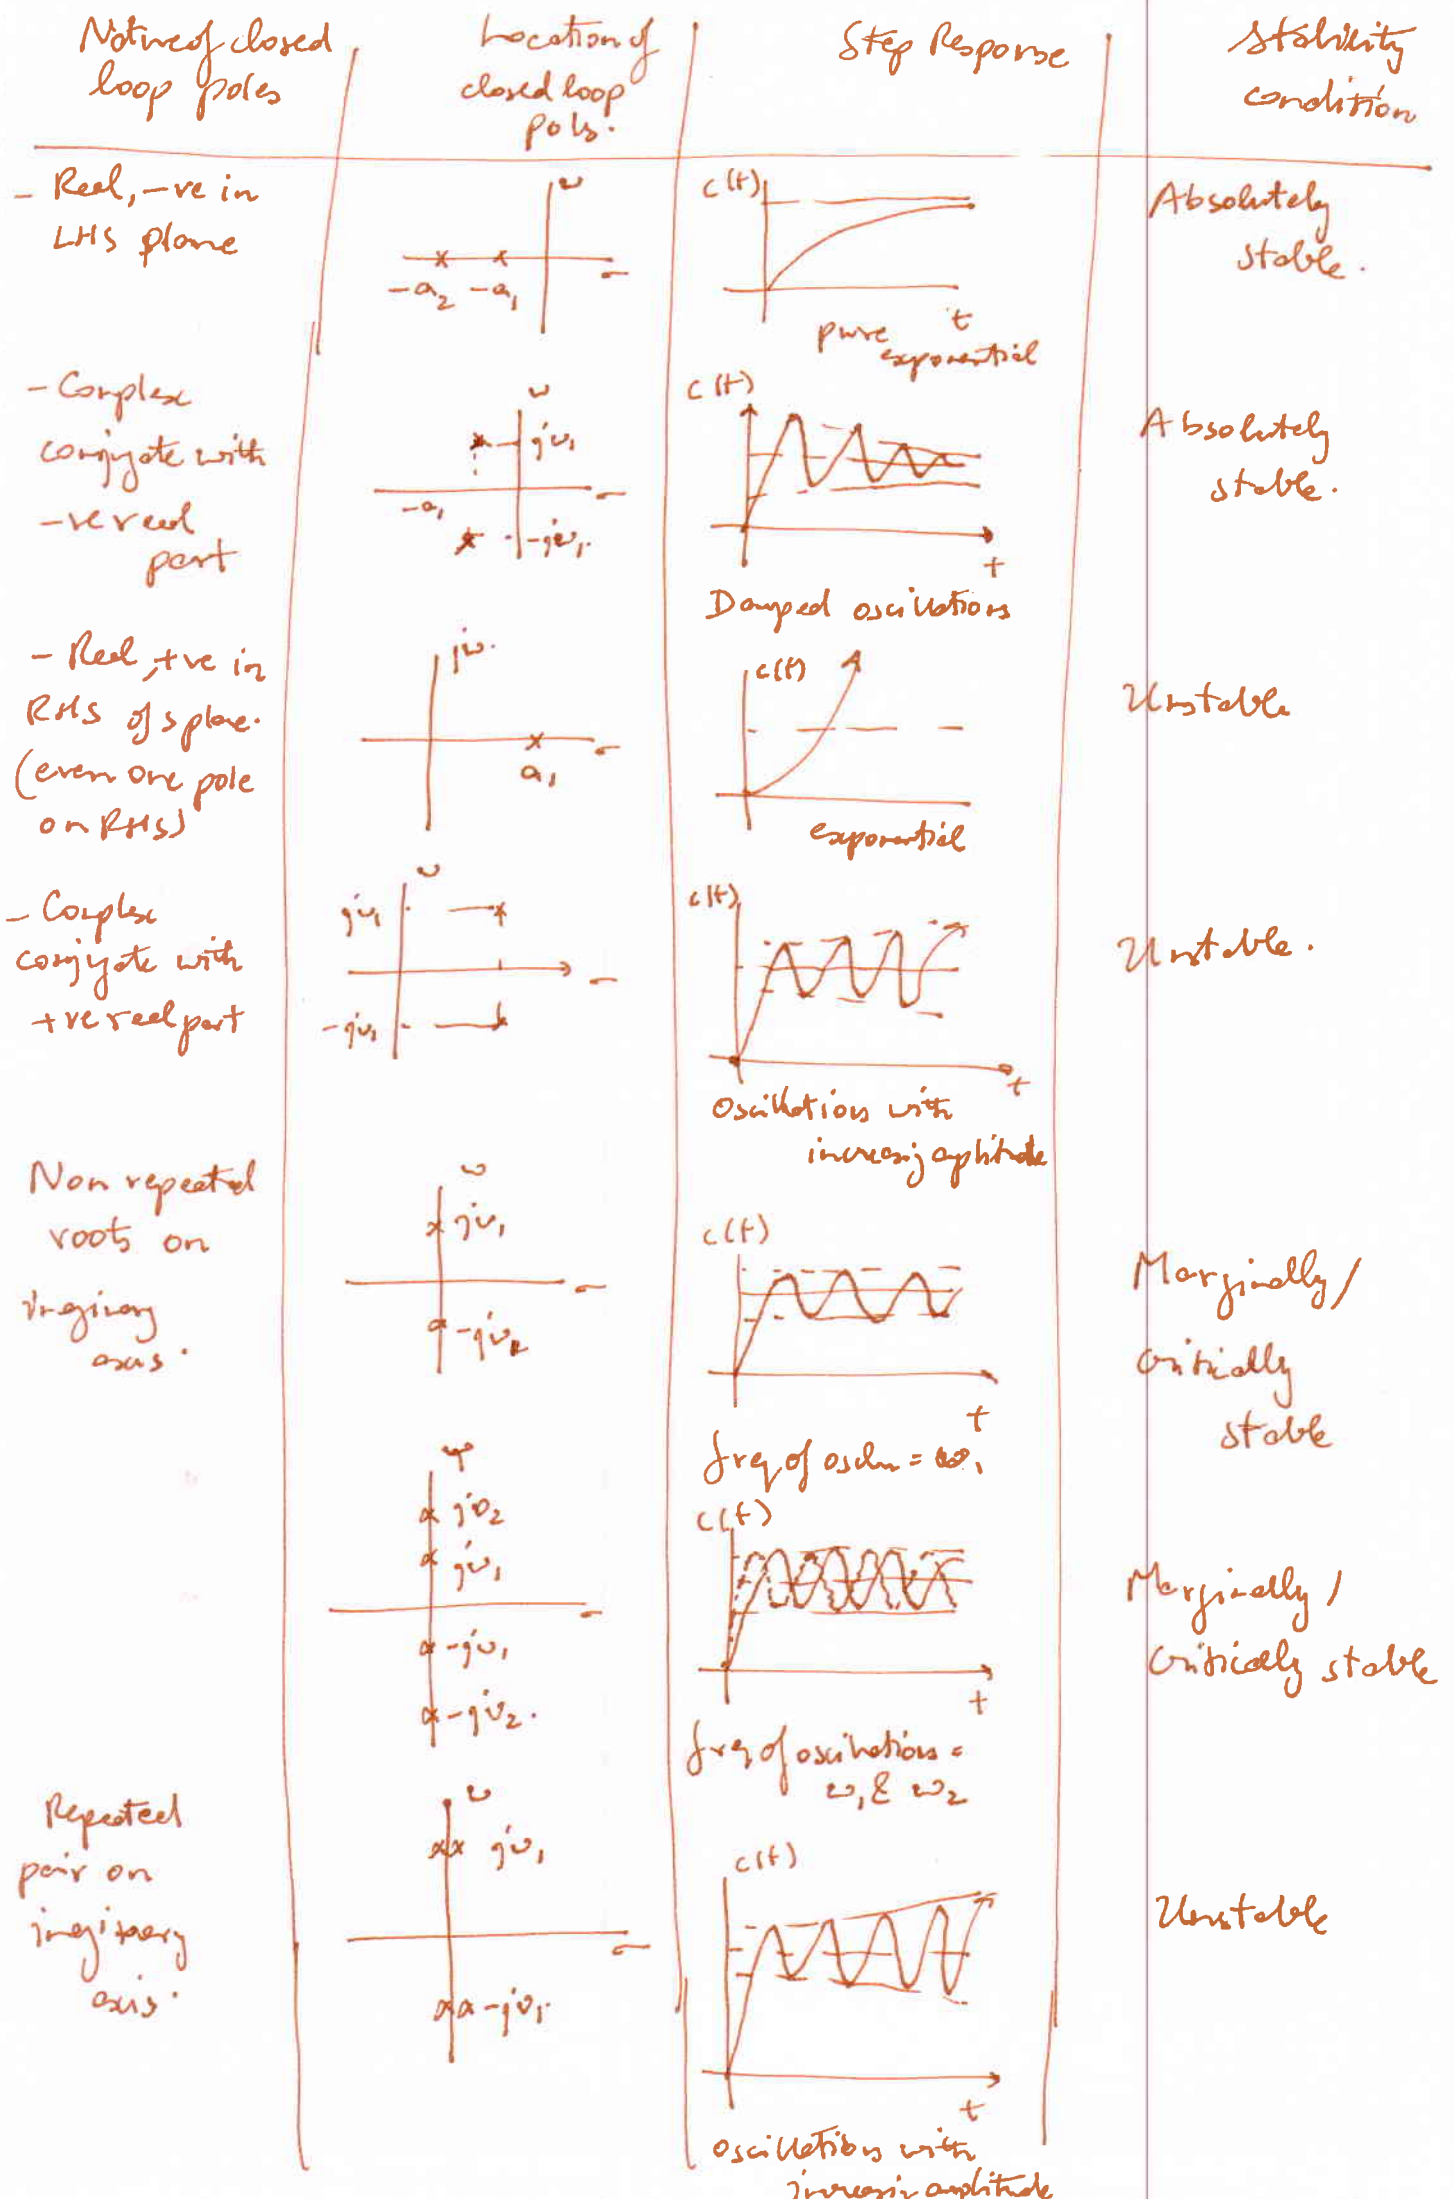 Nature of closed
loop poles
Location of
closed loop
pols.
Step Response
Stability
condition
- Real, -ve in
LHS plane
ω
σ
-a₂ -a₁
c(t)
t
pure
exponential
Absolutely
stable.
- Complex
conjugate with
-ve real
part
ω
jω₁
σ
-a₁
-jω₁.
c(t)
t
Damped oscillations
Absolutely
stable.
- Real, +ve in
RHS of s plane.
(even one pole
on RHS)
jω.
σ
a₁
c(t)
exponential
Unstable
- Complex
conjugate with
+ve real part
ω
jω₁
σ
-jω₁
c(t)
t
Oscillations with
increasing amplitude
Unstable.
Non repeated
roots on
imaginary
axis.
ω
jω₁
σ
c(t)
t
freq of oscln = ω₁
Marginally/
critically
stable
jω₂
jω₁
σ
-jω₁
-jω₂.
c(t)
t
freq of oscillations =
ω₁ & ω₂
Marginally/
Critically stable
Repeated
pair on
imaginary
axis.
ω
jω₁
σ
-jω₁.
c(t)
t
oscillations with
increasin amplitude
Unstable